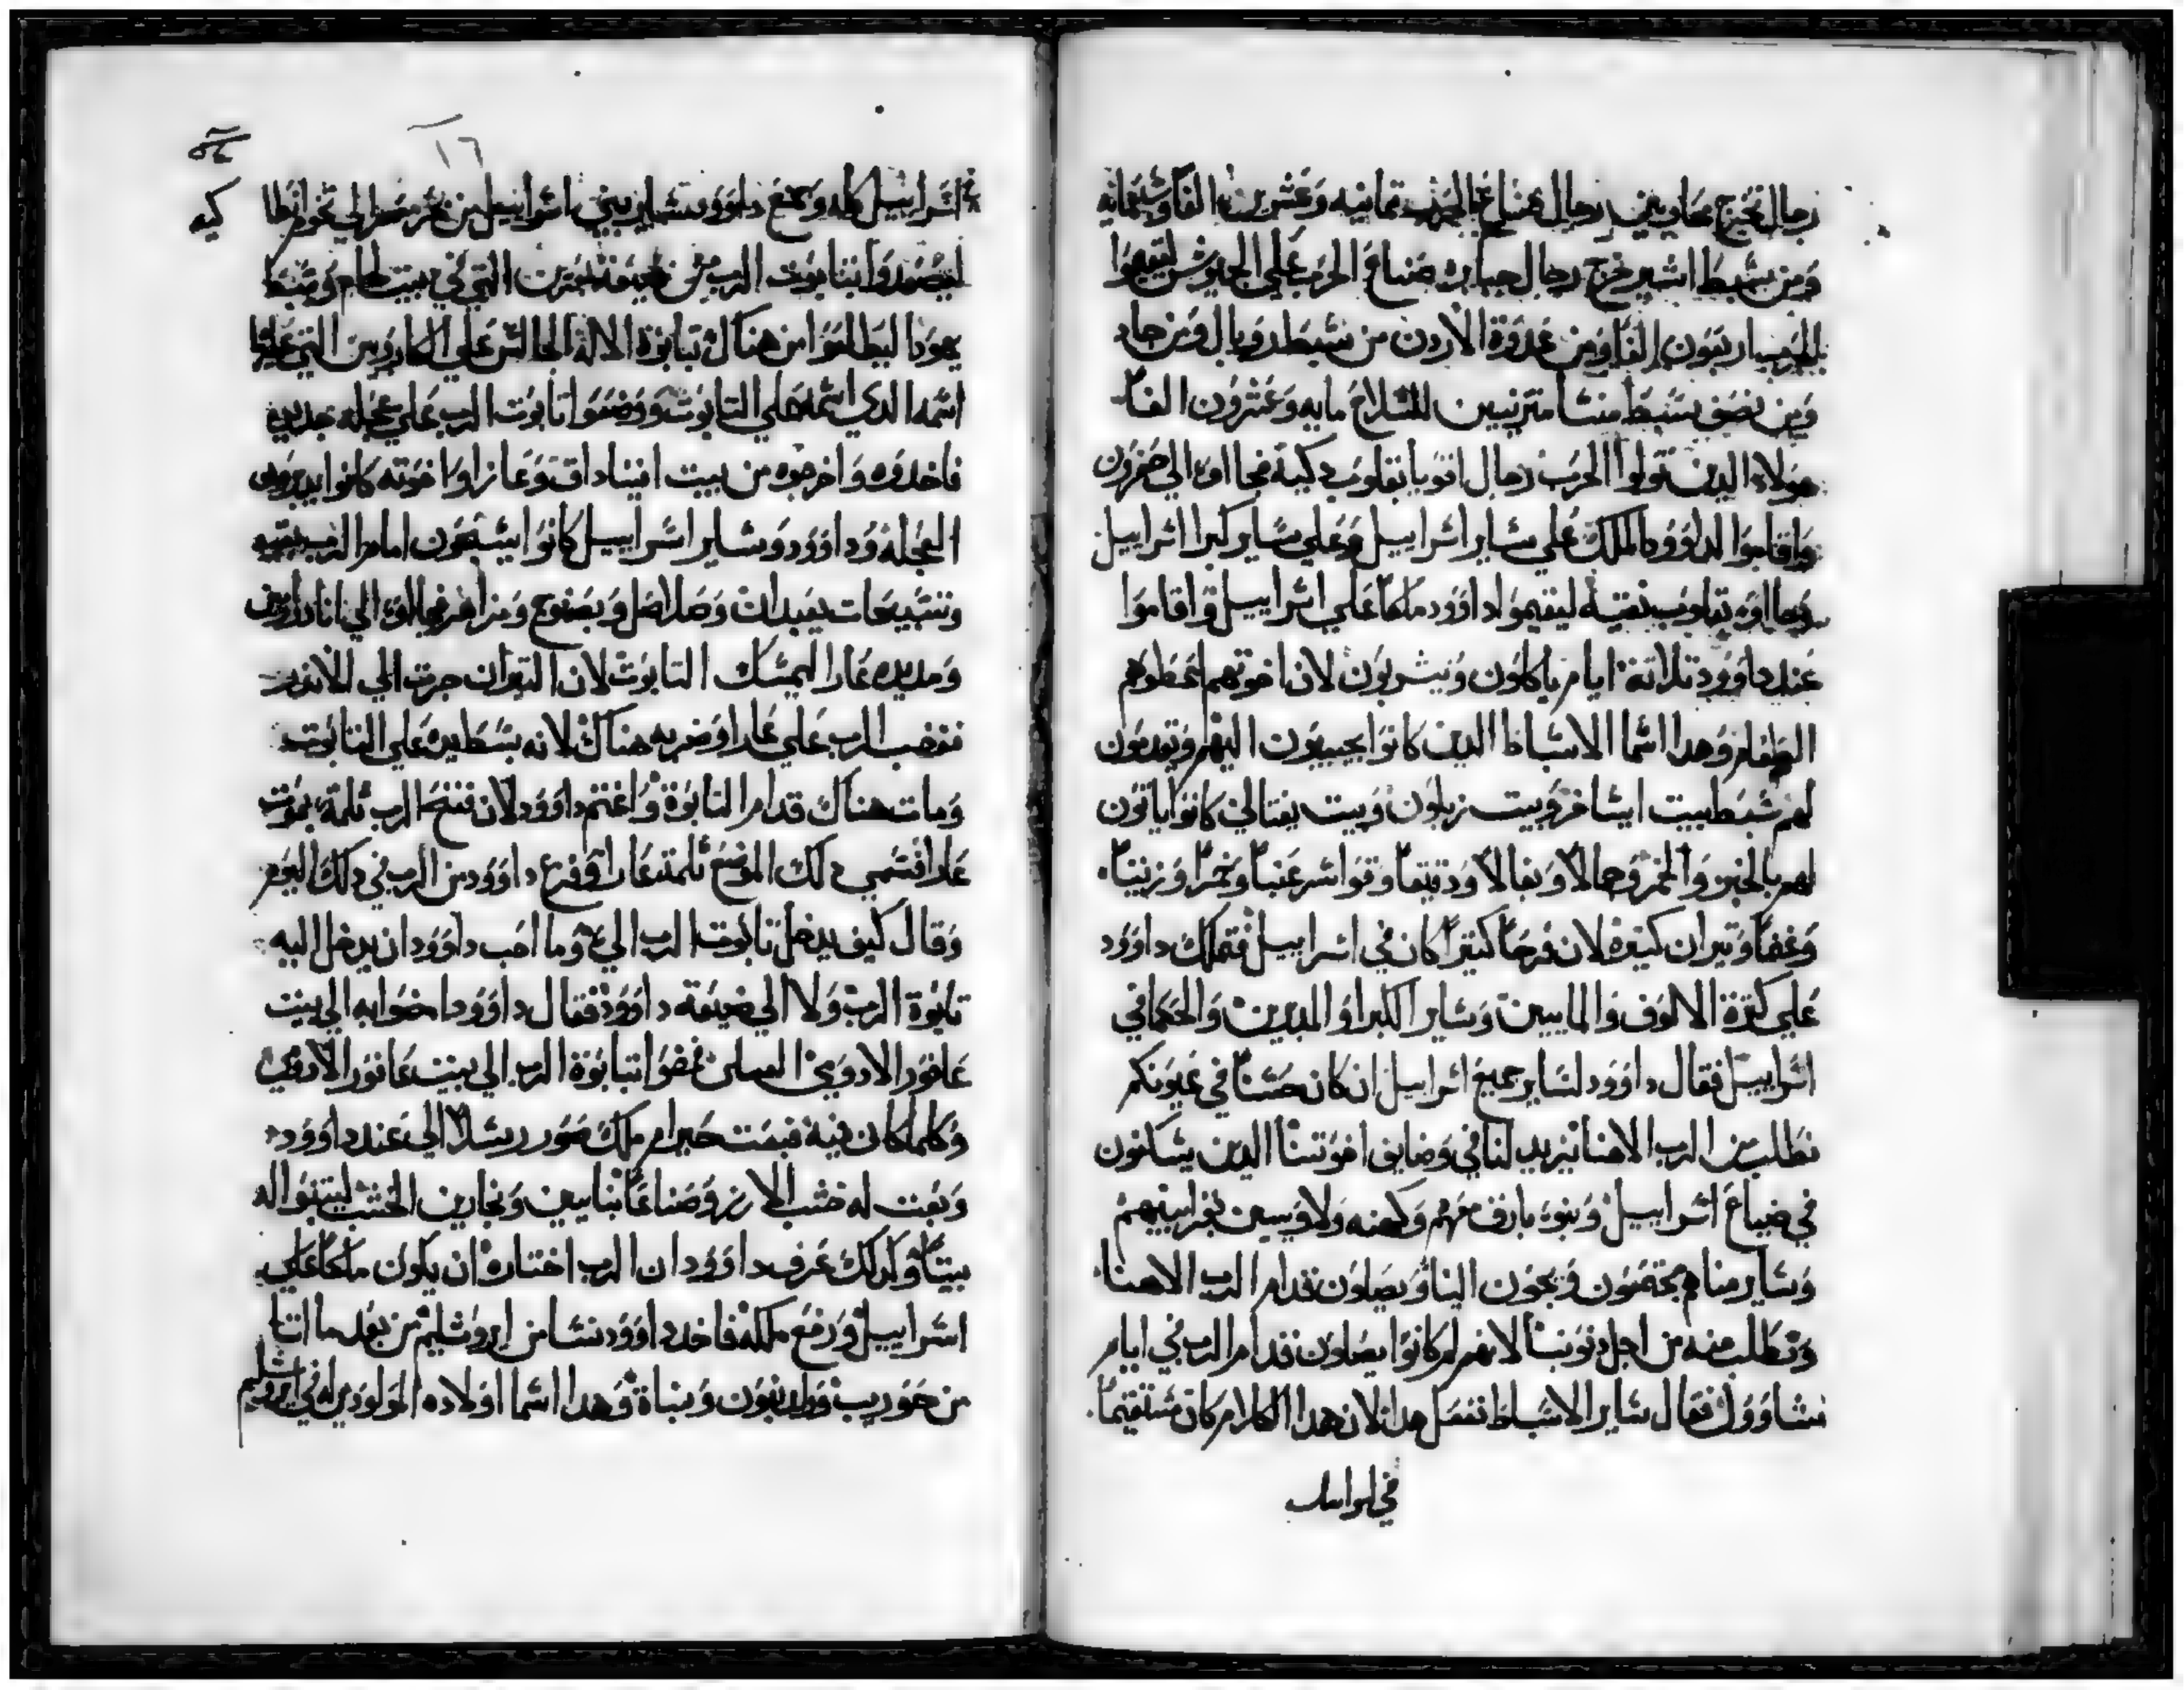 رجال تخرج محاربين رجال صناع الحرب تمانيه وعشرين الفا وستمايه
ومن سبط اشير خرج رجال جبابره صناع الحرب على الجيوش ليقيموا
الحرب اربعون الفا ومن عدوة الاردن من سبط روبال ومن جاد
ومن نصف سبط منسا متزنيين للسلاح مايه وعشرون الفا
هولاء الدين تولوا الحرب رجال اقويا بقلوب دكيه فجااوا الي حفرون
واقاموا لداوود الملك علي ساير اسراييل وعلي ساير كبرا اسراييل
وجااوه بقلوب نقيه ليقيموا داوود ملكا علي اسراييل واقاموا
عند داوود تلاتة ايام ياكلون ويشربون لان اخوتهم اعطوهم
الطعام وهدا اسما الاسباط الدين كانوا يجيبون اليهم ويقدمون
لهم سبط بيت ايساخر وبيت زبلون وبيت يفتالي كانوا ياتون
لهم بالخبز والخمر وجمالا وبغالا ودقيقا وقواسر عنبا وخمرا وزيتا
وغنما وتيران كتيره لان فرحا كتيرا كان في اسراييل فتملك داوود
علي كترة الالوف والمايين وساير الكبرا والمدبرين والحكما في
اسراييل فقال داوود لساير جميع اسراييل ان كان حسنا في عيونكم
نطلب من الرب الاهنا يزيد لنا في وضايق اخوتنا الدين يسكنون
في ضياع اسراييل وبنوه بارق معهم وكهنه ولاويين بقرابينهم
وساير منا هم يجتمعون ويجون الينا ويصلون قدام الرب الاهنا
ونطلب منه من اجل دنوبنا لانهم لم كانوا يصلون قدام الرب في ايام
شاوول فقال ساير الاسباط نفعل هدا لان هدا الكلام كان مستقيما
في
١٦
اسراييل كله وجمع داوود ساير بني اسراييل من مصر الي نحو
ليصعدوا بتابوت الرب من التي في بيت لحام وسبط
يهودا ليطلعوا من هناك تابوة الاله الجالس علي الكاروبين التي عليها
اسمه الدي اسمه علي التابوت ووضعوا تابوت الرب علي عجله جديده
فاخدوه واخرجوه من بيت اميناداق وعازا واخوته كانوا يدبرون
العجله وداوود وساير اسراييل كانوا يسبحون امام الرب
وتسبيحات بعيدان وصلاصل وبصنوج ومزامر فجااوا الي انادر
ومد يده عازا ليمسك التابوت لان التيران جرت الي الاندر
فغضب الرب علي عازا وضربه هناك لانه بسط يده علي التابوت
ومات هناك قدام التابوة واغتم داوود لان فتح الرب تلمة بموت
عازا فسمي دلك الموضع تلمة عازا وفزع داوود من الرب في دلك اليوم
وقال كيف يدخل تابوت الرب الي وما احب داوود ان يدخل اليه
تابوة الرب ولا الي ضيعة داوود فقال داوود احضوا به الي بيت
عافور الادومي فمضوا بتابوة الرب الي بيت عافور الادومي
وكلما كان فيه فبعت حيرام ملك صور رسلا الي عند داوود
وبعت له خشب الارز وصناعا بنايين ونجارين الخشب ليبنوا له
بيتا وكدلك عرف داوود ان الرب اختاره ان يكون ملكا علي
اسراييل ورفع ملكه فاخد داوود نسا من ايروشليم من بعد ما اتا
من حوريب وولد بنون وبناة وهدا اسما اولاده المولودين له في ايروشليم